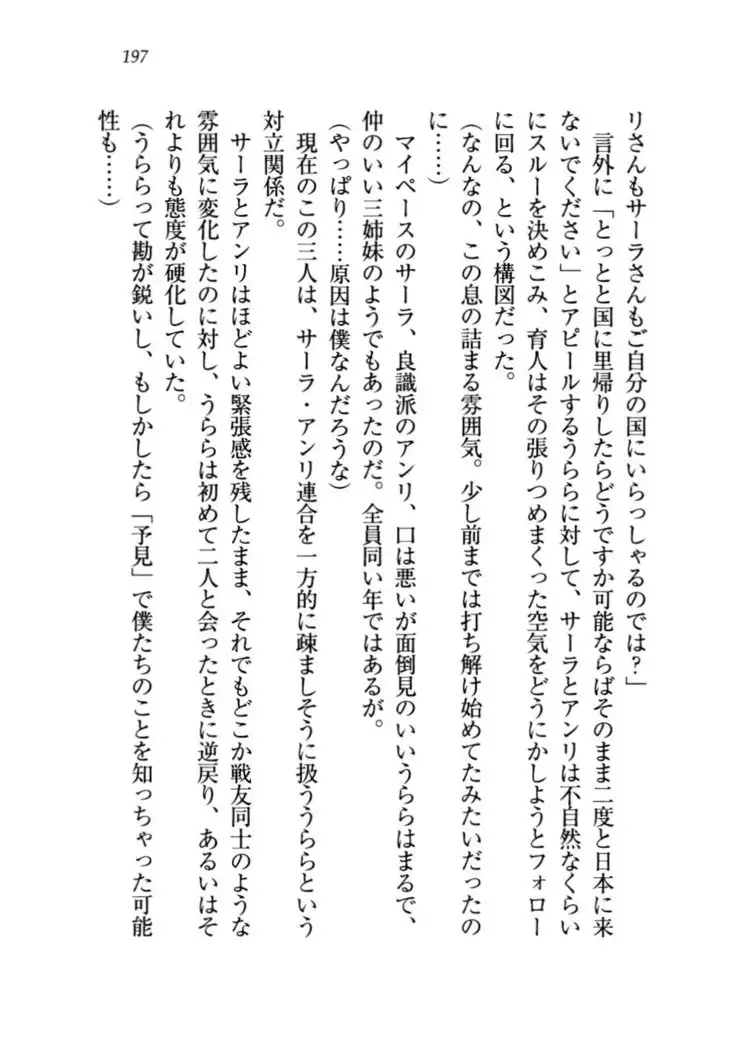 197
リさんもサーラさんもご自分の国にいらっしゃるのでは？」
言外に「とっとと国に里帰りしたらどうですか可能ならばそのまま二度と日本に来
ないでください」とアピールするうららに対して、サーラとアンリは不自然なくらい
にスルーを決めこみ、育人はその張りつめまくった空気をどうにかしようとフォロー
に回る、という構図だった。
（なんなの、この息の詰まる雰囲気。少し前までは打ち解け始めてたみたいだったの
に……）
マイペースのサーラ、良識派のアンリ、口は悪いが面倒見のいいうららはまるで、
仲のいい三姉妹のようでもあったのだ。全員同い年ではあるが。
（やっぱり……原因は僕なんだろうな）
現在のこの三人は、サーラ・アンリ連合を一方的に疎ましそうに扱ううららという
対立関係だ。
サーラとアンリはほどよい緊張感を残したまま、それでもどこか戦友同士のような
雰囲気に変化したのに対し、うららは初めて二人と会ったときに逆戻り、あるいはそ
れよりも態度が硬化していた。
（うららって勘が鋭いし、もしかしたら「予見」で僕たちのことを知っちゃった可能
性も……）